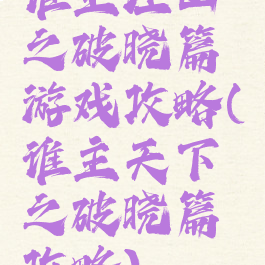 谁主江山
之破晓篇
游戏攻略(
谁主天下
之破晓篇
攻略)